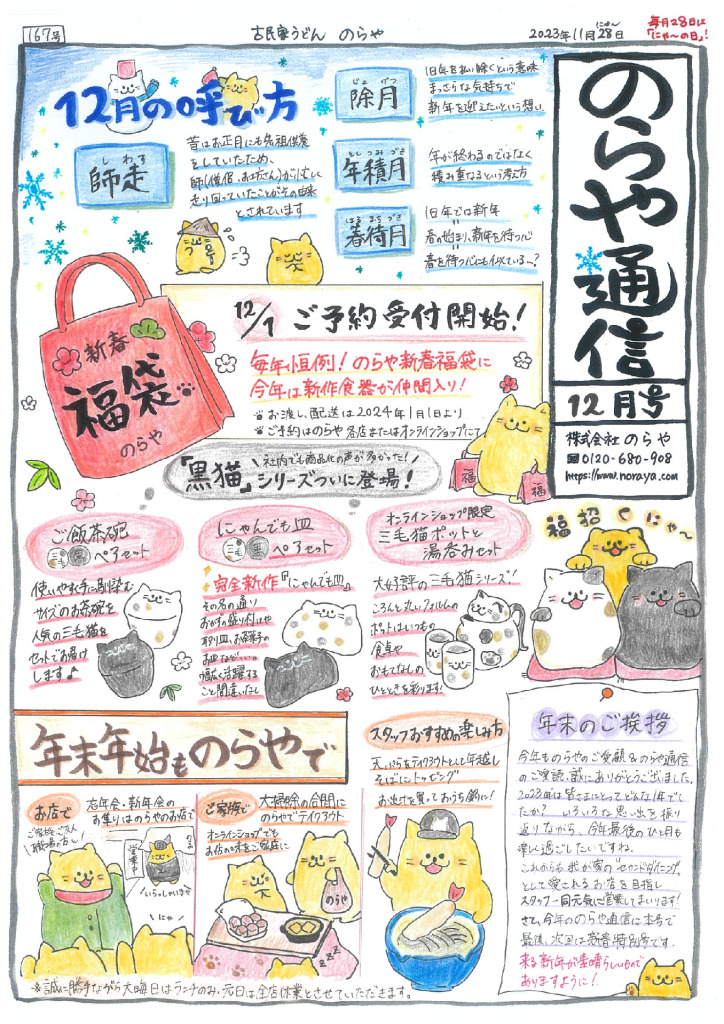 167号
古民家うどん のらや
2023年11月28日
にゃー
毎月28日は
「にゃ〜の日」!
のらや通信
12月号
株式会社 のらや
0120-680-908
https://www.noraya.com
12月の呼び方
しわす
師走
昔はお正月にも先祖供養
をしていたため、
師(僧侶・お坊さん)が忙しく
走り回っていたことがその由来
とされています
じょげつ
除月
旧年を払い除くという意味
まっさらな気持ちで
新年を迎えたいという想い
としつみづき
年積月
年が終わるのではなく
積み重なるという考え方
はるまちづき
春待月
旧年では新年
春の始まり、新年を待つ心
春を待つ心にも似ている…?
新春
福袋
のらや
12/1 ご予約受付開始!
毎年恒例! のらや新春福袋に
今年は新作食器が仲間入り!
お渡し、配送は2024年1月1日より
ご予約はのらや各店またはオンラインショップにて
福
福
社内でも商品化の声が多かった!
「黒猫」シリーズついに登場!
ご飯茶碗
三毛 黒 ペアセット
使いやすく手に馴染む
サイズのお茶碗を
人気の三毛猫を
セットでお届け
します♪
にゃんでも皿
三毛 黒 ペアセット
完全新作『にゃんでも皿』
その名の通り
おかずの盛り付けや
取り皿、お茶菓子の
お皿など…。
幅広く活躍する
こと間違いなし
オンラインショップ限定
三毛猫ポットと
湯呑みセット
大好評の三毛猫シリーズ!
ころんと丸いフォルムの
ポットはいつもの
食卓や
おもてなしの
ひとときを彩ります!
福招くにゃ〜
年末年始ものらやで
お店で
忘年会・新年会の
お集りはのらやのお店で
ご家族・ご友人
職場の方も!
営業中
いらっしゃいませ
にゃ
ご家族で
大掃除の合間に
のらやでテイクアウト
オンラインショップでも
お店の味をご家庭に
のらや
zzz
スタッフおすすめの楽しみ方
天ぷらをテイクアウトして年越し
そばにトッピング
お出汁を買っておうち鍋に!
年末のご挨拶
今年ものらやのご愛顧&のらや通信
のご愛読、誠にありがとうございました。
2023年は皆さまにとってどんな1年でし
たか? いろいろな思い出を振り
返りながら、今年最後のひと月も
楽しく過ごしたいですね。
これからも我が家の"セカンドダイニング"
として愛されるお店を目指し
スタッフ一同元気に営業してまいります!
さて、今年ののらや通信は本号で
最後、次回は新春特別号です。
来る新年が素晴らしいもので
ありますように!
※誠に勝手ながら大晦日はランチのみ・元日は全店休業とさせていただきます。